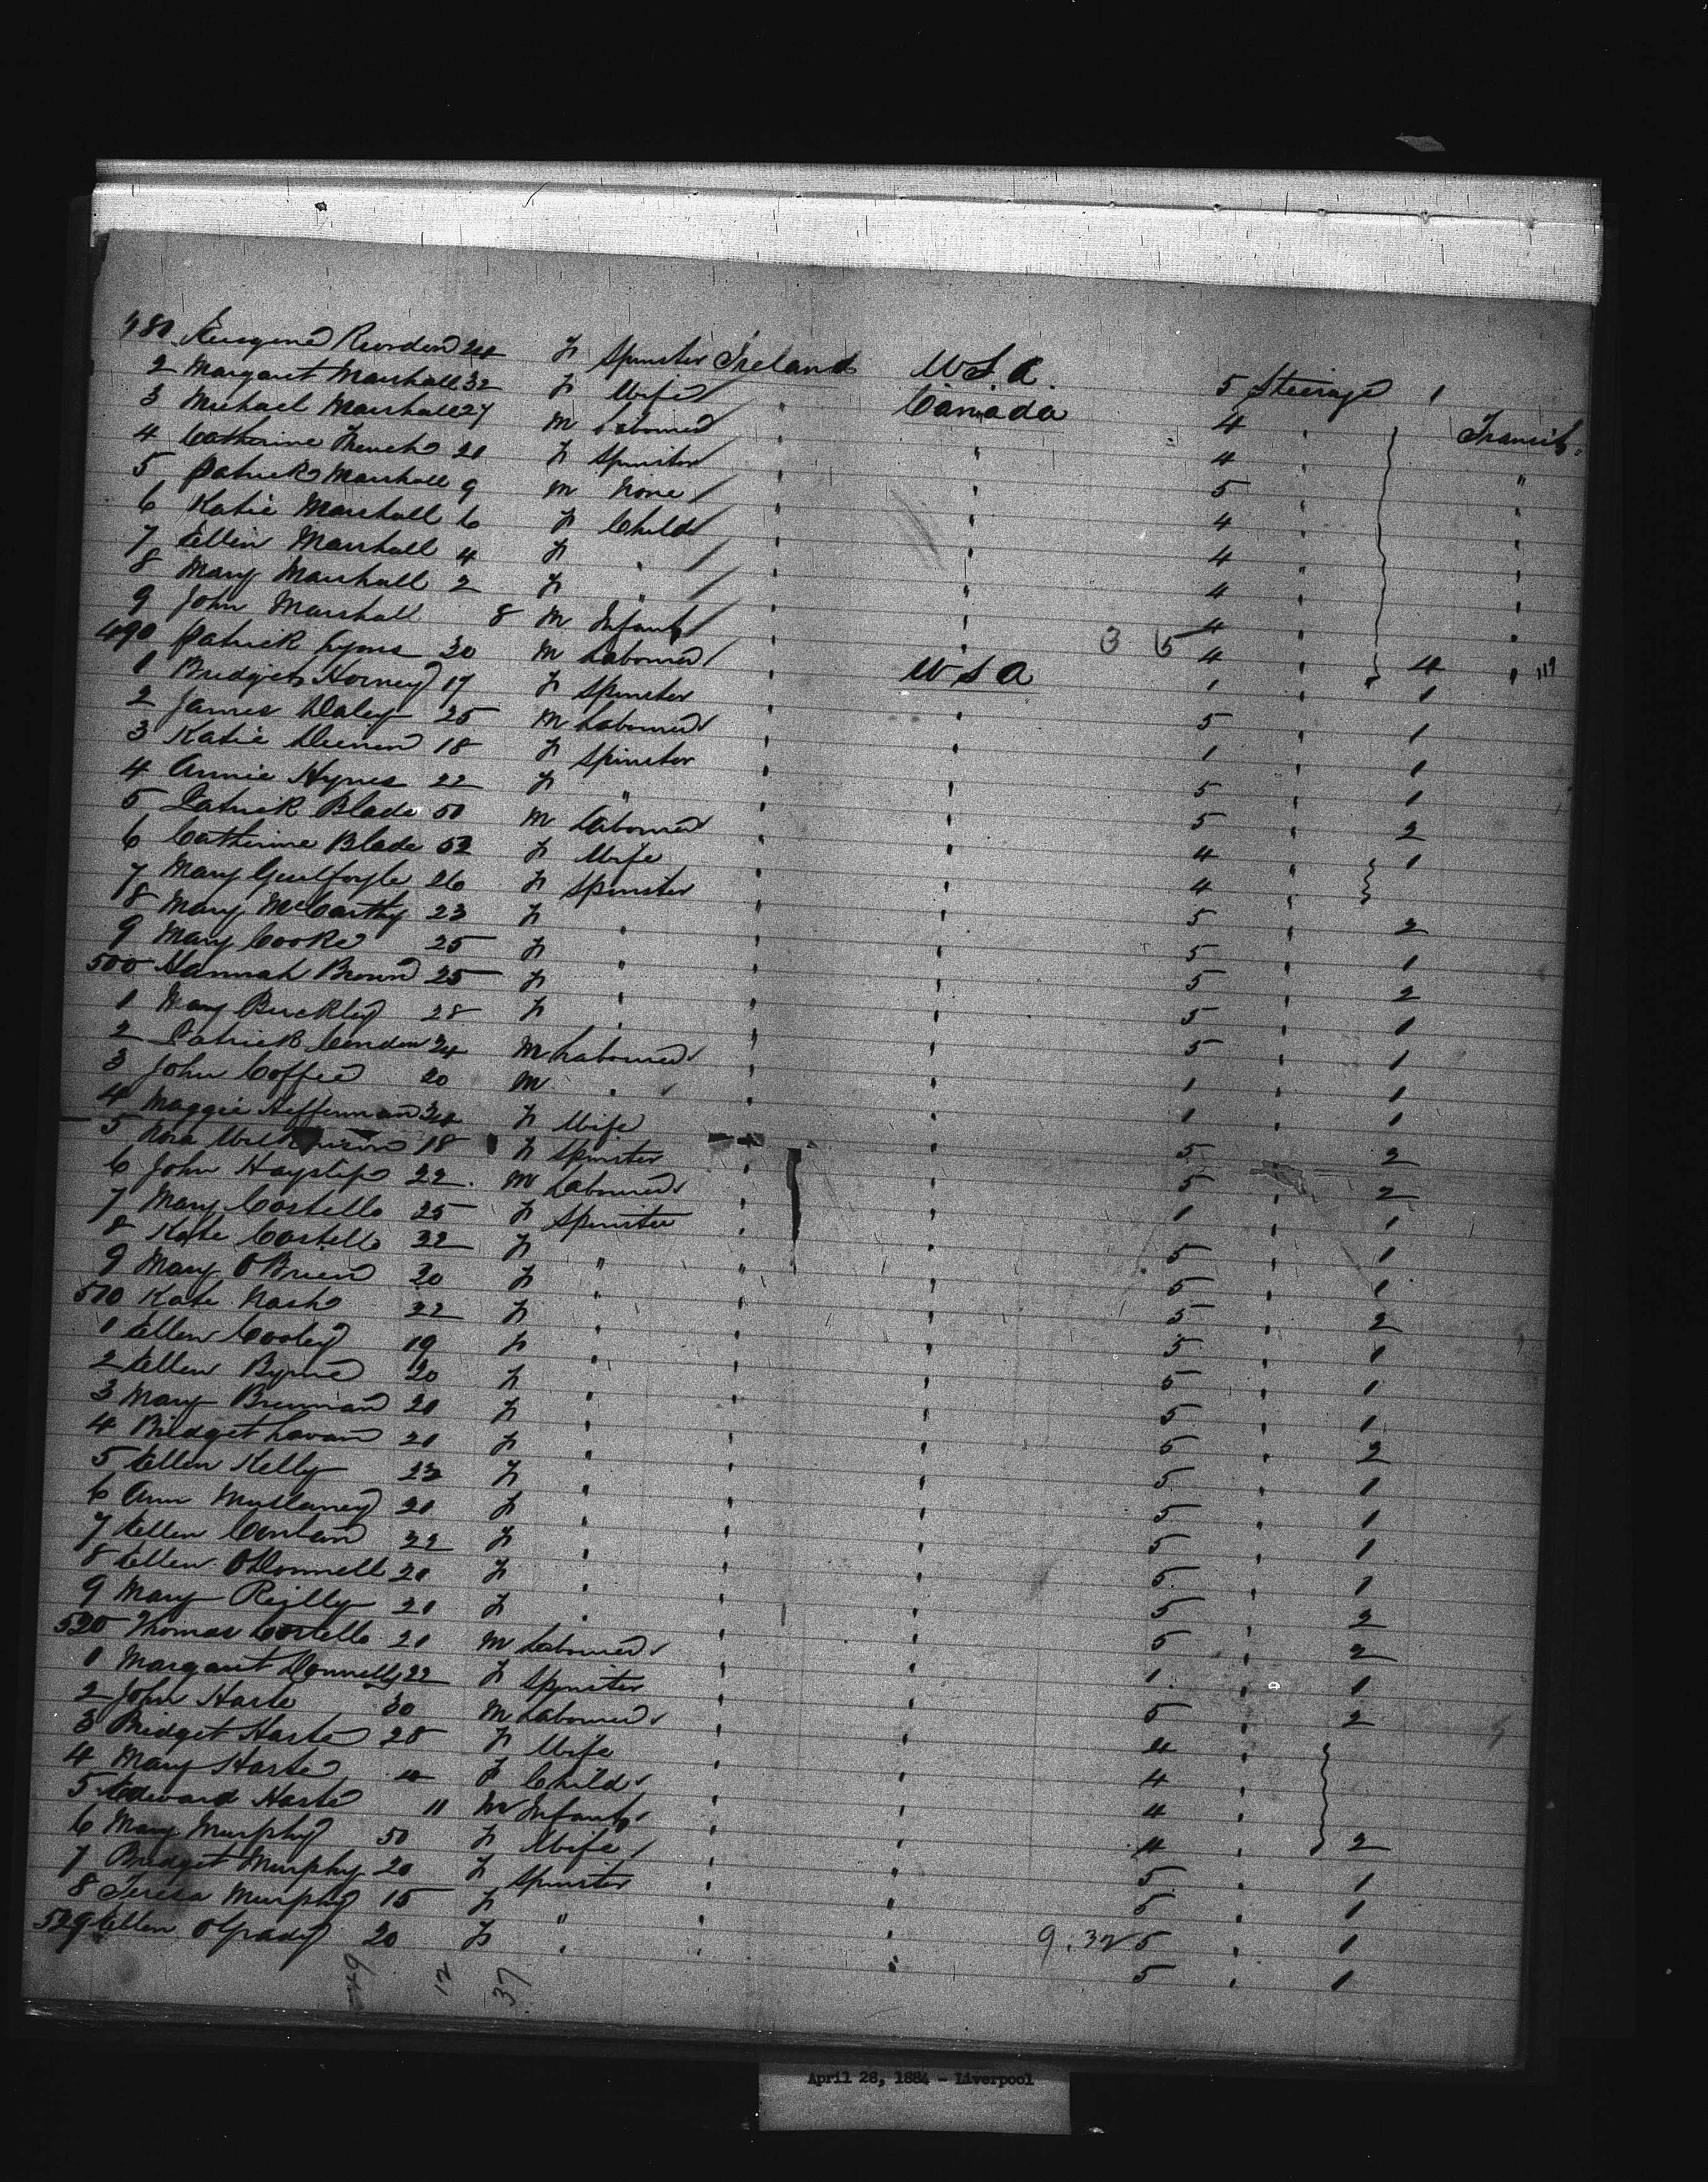 481 Reordon 24 F Spinster Ireland U S A. 5 Steerage 1
2 Margaret Marshall 32 F Wife " Canada 4 " Transit
3 Michael Marshall 27 M Labourer " " 4 " "
4 Catherine French 20 F Spinster " " 5 " "
5 Patrick Marshall 9 M None " " 4 " "
6 Katie Marshall 6 F Child " " 4 " "
7 Ellen Marshall 4 F " " " 4 " "
8 Mary Marshall 2 F " " " 4 " "
9 John Marshall 8 M Infant " " 4 " 4 "
490 Patrick Lyons 30 M Labourer " U S A 1 " 1
1 Bridget Horney 17 F Spinster " " 5 " 1
2 James Daley 25 M Labourer " " 1 " 1
3 Katie 18 F Spinster " " 5 " 1
4 Annie Hynes 22 F " " " 5 " 2
5 Patrick Blade 50 M Labourer " " 4 " 1
6 Catherine Blade 52 F Wife " " 4 "
7 Mary Guilfoyle 26 F Spinster " " 5 " 2
8 Mary McCarthy 23 F " " " 5 " 1
9 Mary Cooke 25 F " " " 5 " 2
500 Hannah Brown 25 F " " " 5 " 1
1 Mary Buckley 28 F " " " 5 " 1
2 Patrick Condon 24 M Labourer " " 1 " 1
3 John Coffee 20 M " " " 1 " 1
4 Maggie Heffernan 34 F Wife " " 5 " 2
5 Nora 18 F Spinster " " 5 " 2
6 John Hayslip 22 M Labourer " " 1 " 1
7 Mary Costello 25 F Spinster " " 5 " 1
8 Kate Costello 22 F " " " 5 " 1
9 Mary O'Brien 20 F " " " 5 " 2
510 Kate Nash 22 F " " " 5 " 1
1 Ellen Cooley 19 F " " " 5 " 1
2 Ellen Byrne 20 F " " " 5 " 1
3 Mary Brennan 20 F " " " 5 " 2
4 Bridget Lavan 20 F " " " 5 " 1
5 Ellen Kelly 22 F " " " 5 " 1
6 Ann Mullaney 20 F " " " 5 " 1
7 Ellen Conlan 22 F " " " 5 " 1
8 Ellen O'Donnell 20 F " " " 5 " 2
9 Mary Reilly 20 F " " " 5 " 2
520 Thomas Costello 20 M Labourer " " 1 " 1
1 Margaret Donnelly 22 F Spinster " " 5 " 2
2 John Harte 30 M Labourer " " 4 "
3 Bridget Harte 28 F Wife " " 4 "
4 Mary Harte F Child " " 4 "
5 Edward Harte 11 M Infant " " 4 " 2
6 Mary Murphy 50 F Wife " " 5 " 1
7 Bridget Murphy 20 F Spinster " " 5 " 1
8 Teresa Murphy 15 F " " " 9.32 5 " 1
529 Ellen O'Grady 20 F " " " 5 " 1
12 37
April 28, 1884 - Liverpool